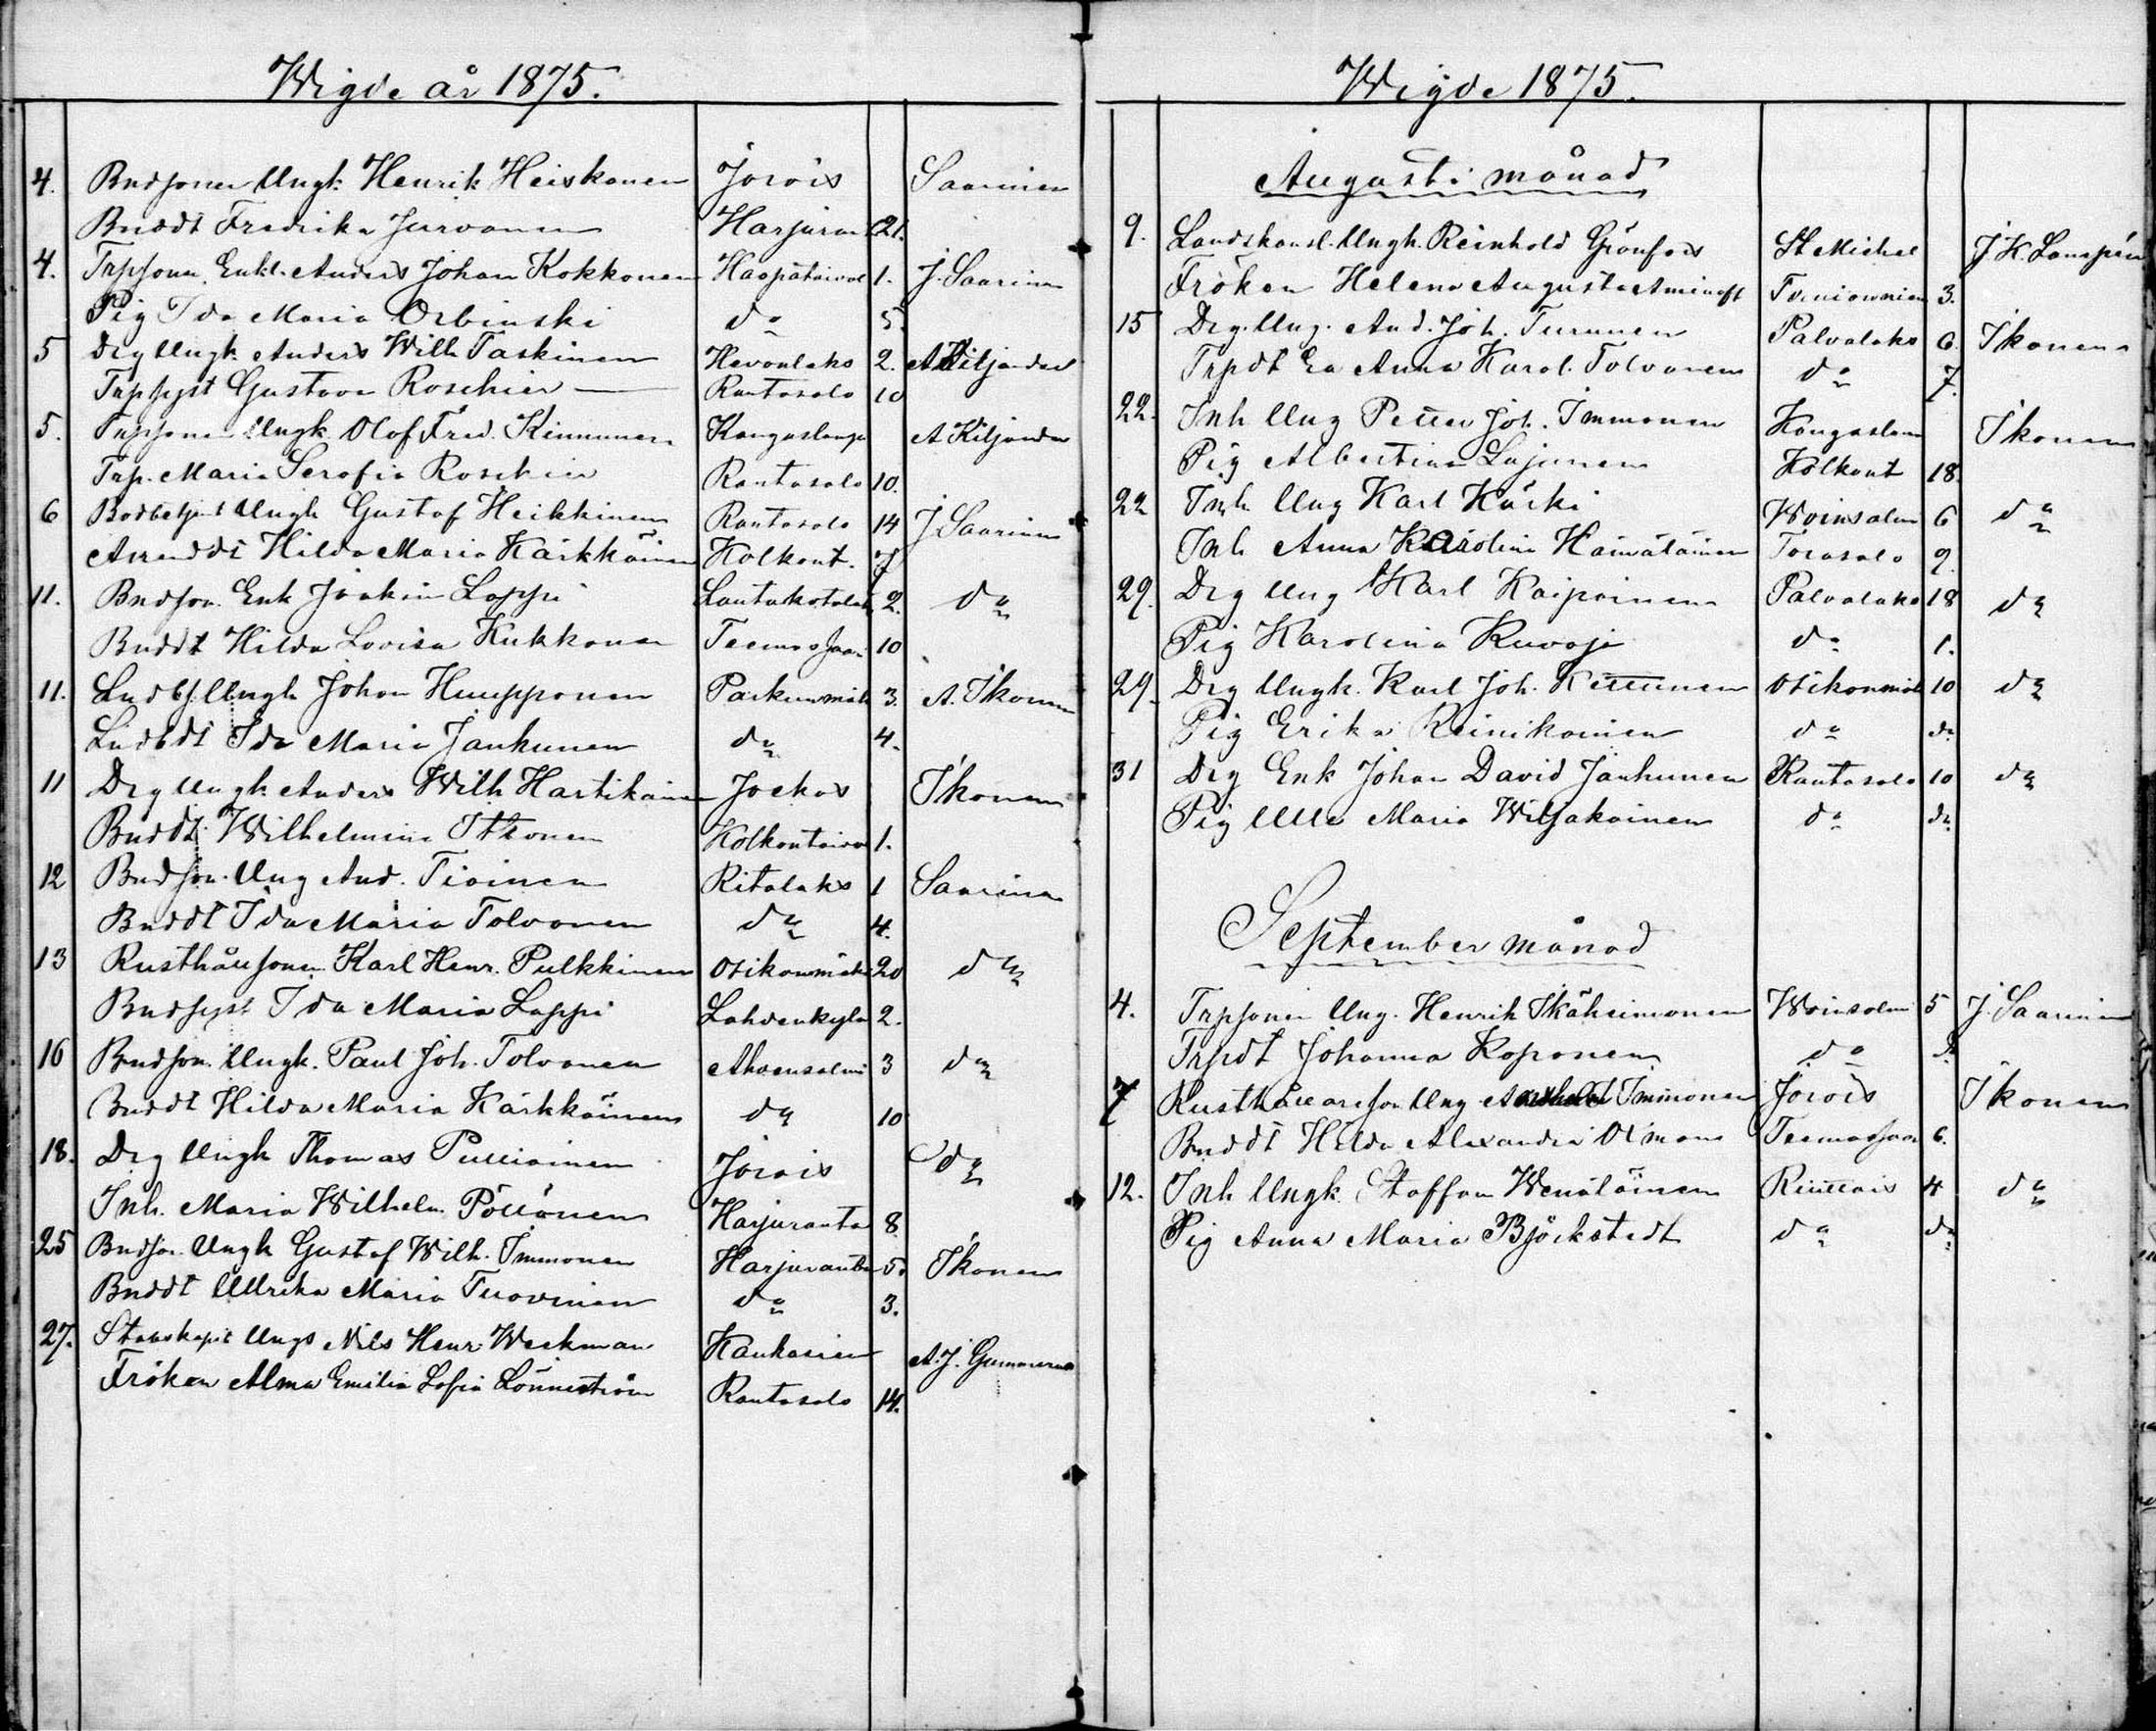 Wigde år 1875.
4. Bndsonen Ungk. Henrik Heiskonen Jorois Saarinen
Bnddt Fredrika Jurvonen Harjuran 21.
4. Trpsonen Enkl. Anders Johan Kokkonen Haapataival 1. J. Saarinen
Pig Ida Maria Orbinski do 5.
5 Drg Ungk Anders Wilh Taskinen Hevonlaks 2. A Kiljander
Trpsyst Gustava Roschier Rantasalo 10
5. Trpsonen Ungk Olof Fred. Kinnunen Kangaslampi A Kiljander
Trp. Maria Serafia Roschier Rantasalo 10.
6 Bodbetjent Ungk Gustaf Heikkinen Rantasalo 14 J Saarinen
Arrenddt Hilda Maria Kärkkäinen Kolkont. 7
11. Bndson. Enk Joakim Lappi Lantakotalah 2. do
Bnddt Hilda Lovisa Kukkonen Teemassaari 10
11. Lndbf. Ungk Johan Huupponen Parkunmäki 3. A. Ikonen
Lndbdt Ida Maria Janhunen do 4.
11 Drg Ungk Anders Wilh Hartikainen Jockas Ikonen
Bnddt Wilhelmina Itkonen Kolkontaival 1.
12 Bndson. Ung And. Tiainen Ritalaks 1 Saarinen
Bnddt Ida Maria Tolvonen do 4.
13 Rusthållsonen Karl Henr. Pulkkinen Osikonmäki 20 do
Bndsyst Ida Maria Lappi Lahdenkylä 2.
16 Bndson. Ungk. Paul Joh. Tolvonen Ahvensalmi 3 do
Bnddt Hilda Maria Kärkkäinen do 10
18. Drg Ungk Thomas Pulliainen Jorois do
Inh. Maria Wilhelm. Pöllönen Harjuranta 8
25 Bndson. Ungk Gustaf Wilh. Immonen Harjuranta 5. Ikonen
Bnddt Ulrika Maria Tuovinen do 3.
27. Stabskapit Ungs Nils Henr Weckman Kaukasien A. J. Gummerus
Fröken Alma Emilia Sofia Lönnström Rantasalo 14.
Wigde 1875.
Augusti månad
9. Landskansl. Ungk. Reinhold Grönfors St Michel J K. Lampén
Fröken Helena Augusta Aminoff 3.
15 Drg. Ung. And. Joh. Turunen Palvalaks 6. Ikonen
Trpdt Eva Anna Karol. Tolvonen do 7.
22. Inh Ung Petter Joh. Immonen Kangaslam Ikonen
Pig Albertina Lajunen Kolkont 18.
22 Inh Ung Karl Härki Woinsalmi 6 do
Inh Anna Karolina Hämäläinen Torasalo 9.
29. Drg Ung Karl Kaipainen Palvalaks 18 do
Pig Karolina Kuvaja do 1.
29. Drg Ungk. Karl Joh. Kettunen Osikonmäk 10 do
Pig Erika Reinikainen do do
31 Drg Enk Johan David Janhunen Rantasalo 10 do
Pig Ulla Maria Wiljakainen do do
September månad
4. Trpsonen Ung. Henrik Ikäheimonen Woinsalmi 5 J. Saarinen
Trpdt Johanna Koponen do do
7 Rusthållaresson Ung Immonen Jorois Ikonen
Bnddt Hilda Alexandra Teemassaari 6.
12. Inh Ungk. Staffan Wenäläinen 4 do
Pig Anna Maria Björkstedt do do